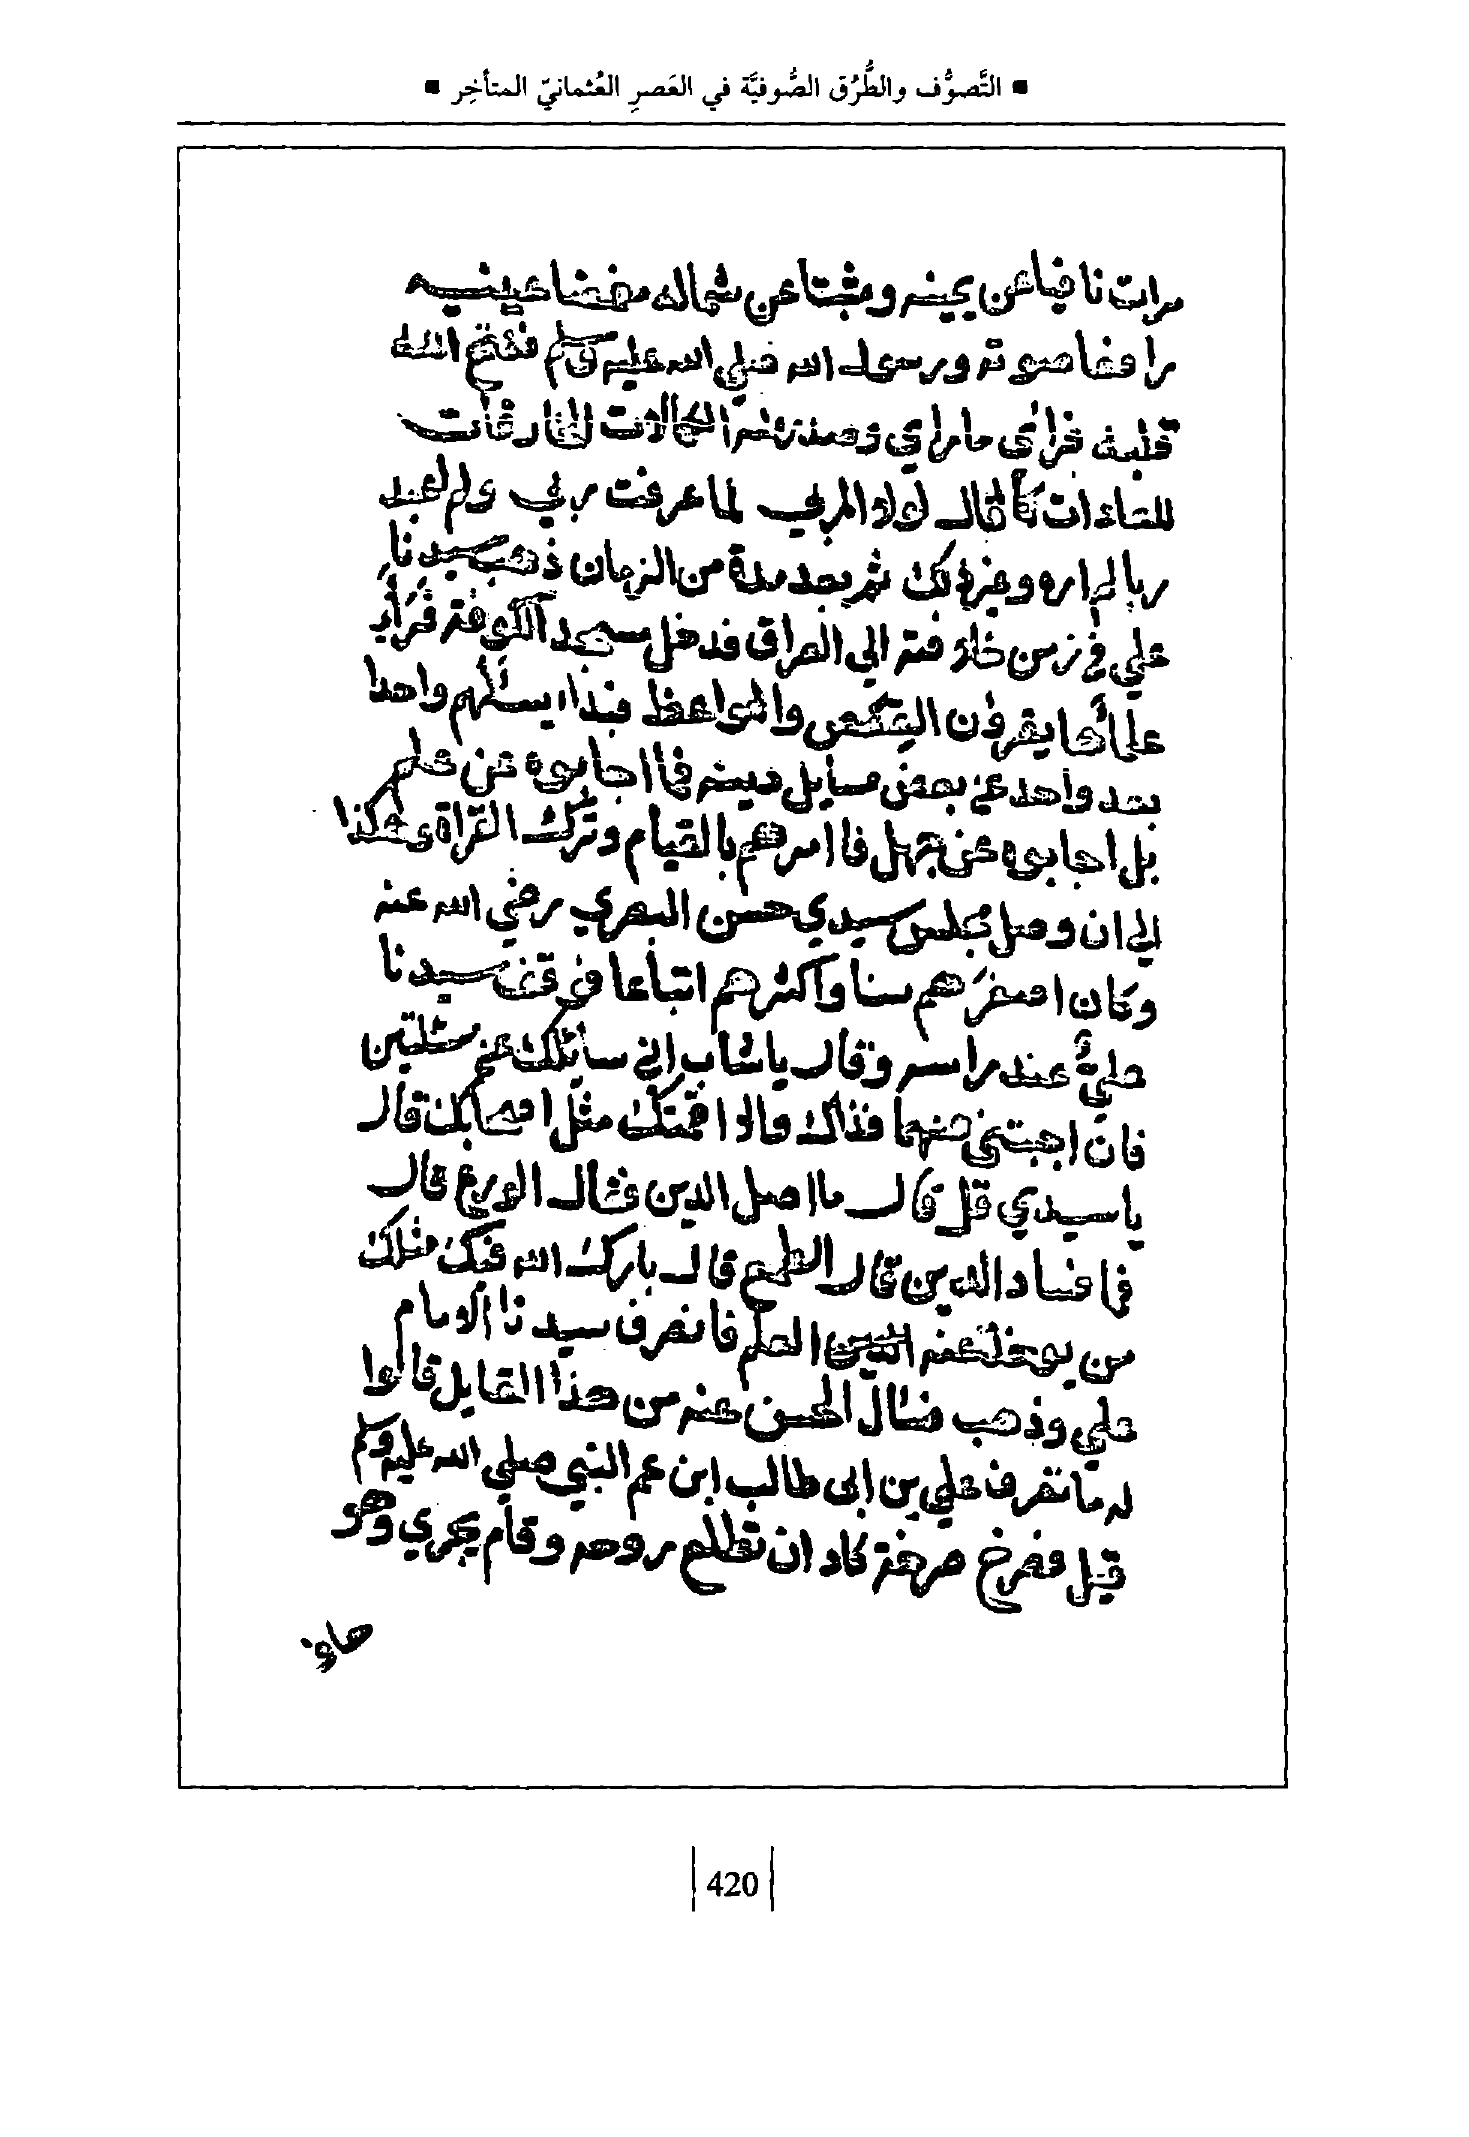 ▪ التَّصوُّف والطُّرُق الصُّوفيَّة في العَصرِ العُثمانيّ المتأخِر ▪
مرات نافيا عن يمينه ومثبتا عن شماله مغمضا عينيه
رافعا صوته ورسول الله صلي الله عليه وسلم ففتح الله
قلبه فرأي ما راي وصدرت له الحالات الخارقات
للعادات كما قال لولا المربي لما عرفت ربي ولم اعبد
ربا لم اره وعزة ثم بعد مدة من الزمان ذهب سيدنا
علي في زمن خلافته الي العراق فدخل مسجد الكوفة فرأي
علمآها يقرون القصص والمواعظ فبداء يسئلهم واحدا
بعد واحد عن بعض مسايل دينه فما اجابوه عن علم
بل اجابوه عن جهل فامرهم بالقيام وترك القرأة وهكذا
الي ان وصل مجلس سيدي حسن البصري رضي الله عنه
وكان اصغرهم سنا وأكثرهم اتباعا فوقف سيدنا
عليٌّ عند راسه وقال ياشاب اني سائلك عن مسئلتين
فان اجبتني عنهما فذاك والا اقمتك مثل اصحابك قال
ياسيدي قل قال ما اصل الدين فقال الورع قال
فما فساد الدين قال الطمع قال بارك الله فيك مثلك
من يوخذ عنه العلم فانصرف سيدنا الامام
علي وذهب فسأل الحسن عنه من هذا القايل قالوا
له ما تعرف علي بن ابي طالب ابن عم النبي صلي الله عليه وسلم
قيل فصرخ صرخة كاد ان تطلع روحه وقام يجري وهو
حاف
420